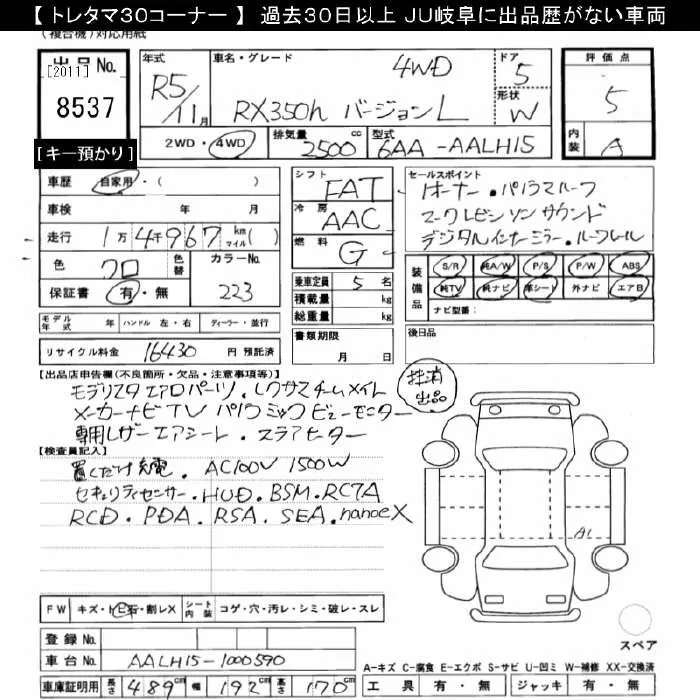 【 トレタマ30コーナー 】 過去30日以上 JU岐阜に出品歴がない車両
(複合機)対応用紙
出品 No.
[2011]
8537
[キー預かり]
年式
R5/11月
車名・グレード
4WD
RX350h バージョンL
ドア
5
形状
W
評価点
5
内装
A
2WD・4WD
排気量
2500 cc
型式
6AA-AALH15
車歴 自家用・( )
車検 年 月
走行 1万4千967 km マイル ( )
色 クロ 色替 カラーNo. 223
保証書 有・無
モデル年式 年 ハンドル 左・右 ディーラー・並行
リサイクル料金 16430 円 預託済
シフト FAT
冷房 AAC
燃料 G
乗車定員 5 名
積載量 kg
総重量 kg
書類期限
月 日
セールスポイント
1オーナー・パノラマルーフ
マークレビンソンサウンド
デジタルインナーミラー・ルーフレール
装備品
S/R 純A/W P/S P/W ABS
純TV 純ナビ 革シート 外ナビ エアB
ナビ型番:
後日品
【出品店申告欄(不良箇所・欠品・注意事項等)】
モデリスタエアロパーツ・レクサスチームメイト
メーカーナビTV パノラミックビューモニター
専用レザーエアシート・ステアヒーター
抹消出品
【検査員記入】
置くだけ充電・AC100V 1500W
セキュリティセンサー・HUD・BSM・RCTA
RCD・PDA・RSA・SEA・nanoeX
A1
FW キズ・トビ石・割レX シート内装 コゲ・穴・汚レ・シミ・破レ・スレ
登録 No.
車台 No. AALH15-1000590
車庫証明用 長さ 489cm 幅 192cm 高さ 170cm
スペア
A-キズ C-腐食 E-エクボ S-サビ U-凹ミ W-補修 XX-交換済
工具 有・無 ジャッキ 有・無